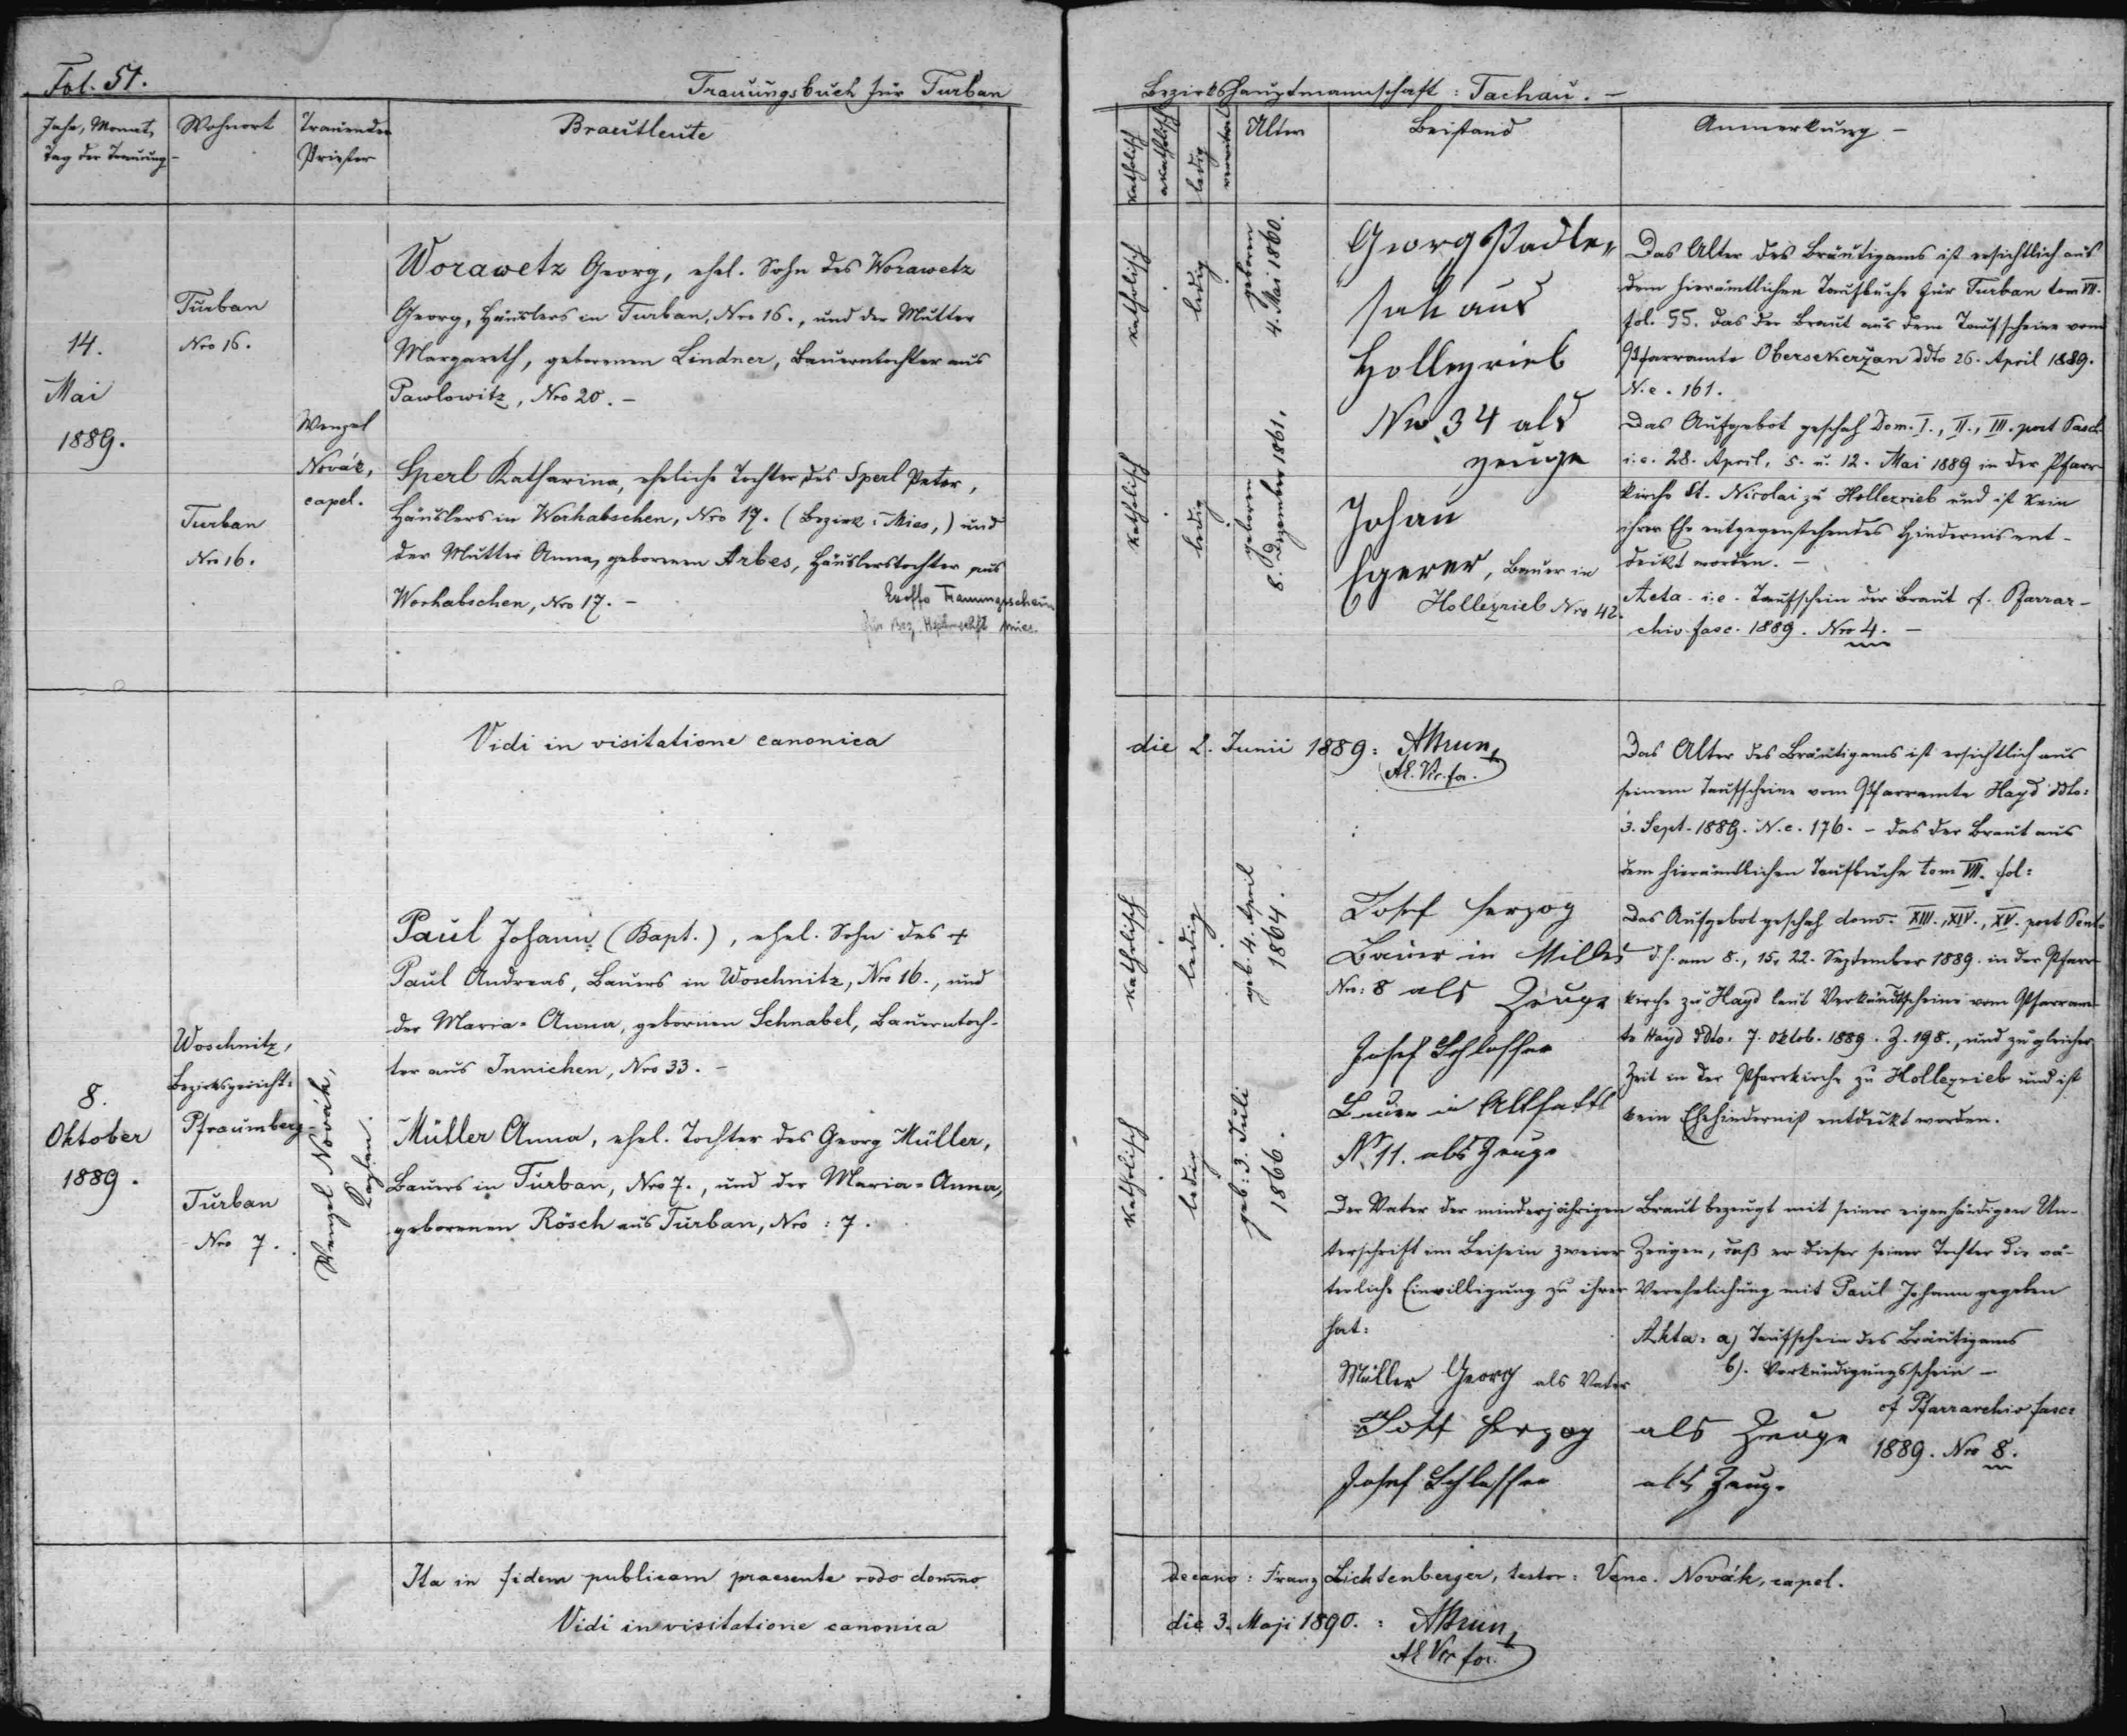 Fol. 51.
Trauungsbuch für Turban
Jahr, Monat,
Tag der Trauung
Wohnort
Trauender
Priester
Brautleute
14.
Mai
1889.
Turban
Nro 16.
Turban
Nro 16.
Wenzel
Novák,
capel.
Worawetz Georg, ehel. Sohn des Worawetz
Georg, Häuslers in Turban, Nro 16., und der Mutter
Margareth, geborenen Lindner, Bauerntochter aus
Pawlowitz, Nro 20. -
Sperl Katharina, eheliche Tochter des Sperl Peter,
Häuslers in Worhabschen, Nro 17. (Bezirk: Mies,) und
der Mutter Anna, geborenen Arbes, Häuslerstochter aus
Worhabschen, Nro 17. -
Exoffo Trauungsschein
Vidi in visitatione canonica
8.
Oktober
1889.
Woschnitz,
Bezirksgericht:
Pfraumberg
Turban
Nro 7.
Wenzel Novák,
Kaplan.
Paul Johann (Bapt.), ehel. Sohn des +
Paul Andreas, Bauers in Woschnitz, Nro 16., und
der Maria-Anna, gebornen Schnabel, Bauerntoch-
ter aus Innichen, Nro 33. -
Müller Anna, ehel. Tochter des Georg Müller,
Bauers in Turban, Nro 7., und der Maria-Anna,
geborenen Rösch aus Turban, Nro: 7.
Ita in fidem publicam praesente rvdo domno
Vidi in visitatione canonica
Bezirkshauptmannschaft: Tachau. -
katholisch
akatholisch
ledig
verwitwet
Alter
Beistand
Anmerkung -
katholisch
ledig
geboren
4. Mai 1860.
katholisch
ledig
geboren
8. Dezember 1861.
Georg Stadle,,
aus
Hollezrieb
Nro 34 als
zeuge
Johan
Egerer, Bauer in
Hollezrieb Nro 42.
Das Alter des Bräutigams ist ersichtlich aus
dem hierämtlichen Taufbuche für Turban tom VII.
fol. 55. das der Braut aus dem Taufscheine vom
Pfarramte Obersekerzan ddto 26. April 1889.
N.e. 161.
Das Aufgebot geschah Dom. I., II., III. post Pasch.
i.e. 28. April, 5. u. 12. Mai 1889 in der Pfarr-
kirche St. Nicolai zu Hollezrieb und ist kein
ihrer Ehe entgegenstehendes Hindernis ent-
deckt worden. -
Acta i.e. Taufschein der Braut cf. Pfarrar-
chiv fasc. 1889. Nro 4. -
die 2. Junii 1889:
Das Alter des Bräutigams ist ersichtlich aus
seinem Taufscheine vom Pfarramte Hayd ddto:
3. Sept. 1889. N.e. 176. - das der Braut aus
dem hierämtlichen Taufbuche tom VII. fol:
katholisch
ledig
geb. 4. April
1864.
katholisch
ledig
geb: 3. Juli
1866.
Josef Herzog
Bauer in Milles
Nro: 8 als Zeuge
Josef Schlosser
Bauer in Altsattl
Nr. 11. als Zeuge
Das Aufgebot geschah dom. XIII., XIV., XV. post Pent.
d.h. am 8., 15, 22. September 1889. in der Pfarr-
kirche zu Hayd laut Verkündscheine vom Pfarram-
te Hayd ddto. 7. Oktob. 1889. Z. 198., und zu gleicher
Zeit in der Pfarrkirche zu Hollezrieb und ist
kein Ehehinderniß entdeckt worden.
Der Vater der minderjährigen Braut bezeugt mit seiner eigenhändigen Un-
terschrift im Beisein zweier Zeugen, daß er dieser seiner Tochter die vä-
terliche Einwilligung zu ihrer Verehelichung mit Paul Johann gegeben
hat:
Akta: a) Taufschein des Bräutigams
b). Verkündigungsschein -
cf Pfarrarchiv fasc:
1889. Nro 8.
Müller Georg als Vater
Josef Herzog als Zeuge
Josef Schlosser als Zeuge
decano: Franz Lichtenberger, testor: Venc. Novák, capel.
die 3. Maji 1890.: